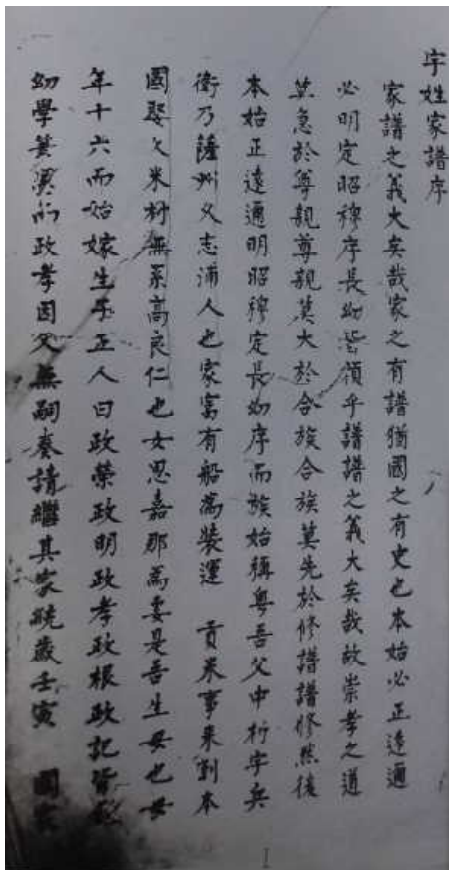 字姓家譜序
家譜之義大矣哉家之有譜猶國之有史也本始必正遠邇
必明定昭穆序長幼皆須乎譜譜之義大矣哉故崇孝之道
莫急於尊親尊親莫大於合族合族莫先於修譜譜修然後
本始正遠邇明昭穆定長幼序而族始稱粵吾父中村宇兵
衛乃薩州久志浦人也家富有船為裝運 貢米事來到本
國娶久米村無系高良仁也女思嘉那為妾是吾生母也母
年十六而始嫁生子五人曰政榮政明政孝政根政記皆
幼學箕裘而政孝因父無嗣奏請繼其家統歲壬寅 國
1